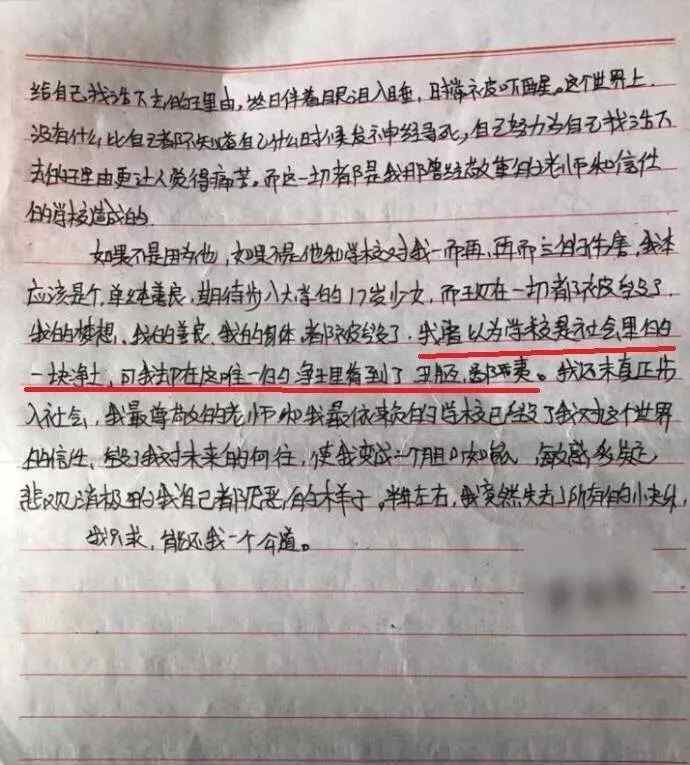 给自己找活下去的理由，此日伴着眼泪入睡，时常被吓醒。这个世界上
没有什么比自己都不知道自己什么时候发神经寻死，自己努力为自己找活下
去的理由更让人觉得痛苦。而这一切都是我那曾经敬重的老师和信任
的学校造成的
如果不是因为他，如果不是他和学校对我一而再，再而三的伤害，我本
应该是个单纯善良，期待步入大学的17岁少女，而现在一切都被毁了
我的梦想、我的善良、我的身体，都被毁了。我以为学校是社会里的
一块净土，可我却在这唯一的净土里看到了丑陋，。我还未真正步
入社会，我最尊敬的老师和我最依赖的学校已毁了我对这个世界
的信任，毁了我对未来的向往，使我变成一个胆小如鼠，敏感多疑
悲观消极的我自己都厌恶的样子。半年左右，我突然失去了所有的小
我只求，能还我一个公道。